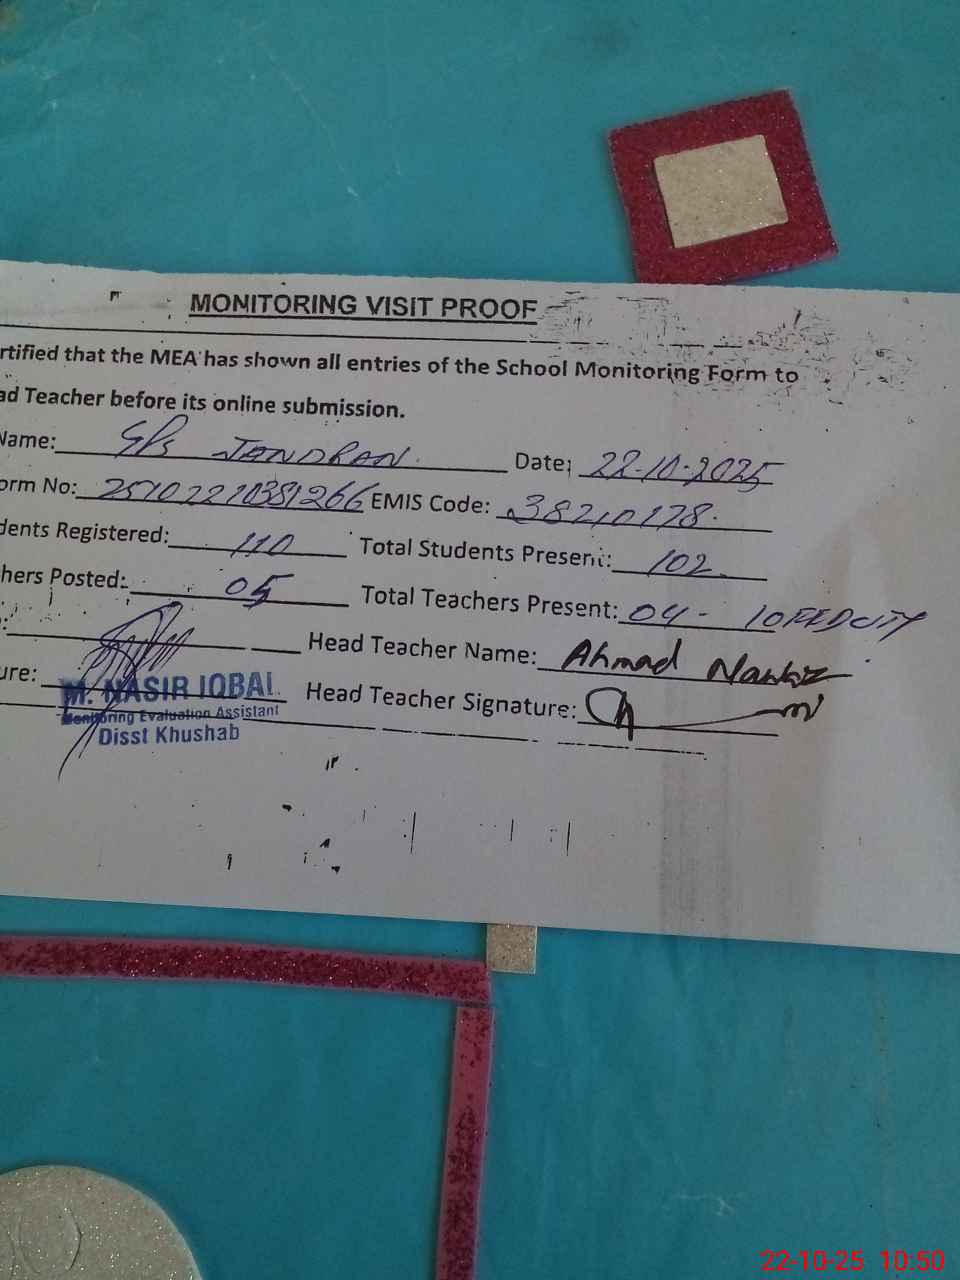 MONITORING VISIT PROOF
rtified that the MEA has shown all entries of the School Monitoring Form to
ad Teacher before its online submission.
Name: GPS JANDRAN Date: 22-10-2025
orm No: 25102210381266 EMIS Code: 38210178
dents Registered: 110 Total Students Present: 102
hers Posted: 05 Total Teachers Present: 04 -
Head Teacher Name: Ahmad Nawaz
ure: Head Teacher Signature:
M. NASIR IQBAL
Monitoring Evaluation Assistant
Disst Khushab
22-10-25 10:50